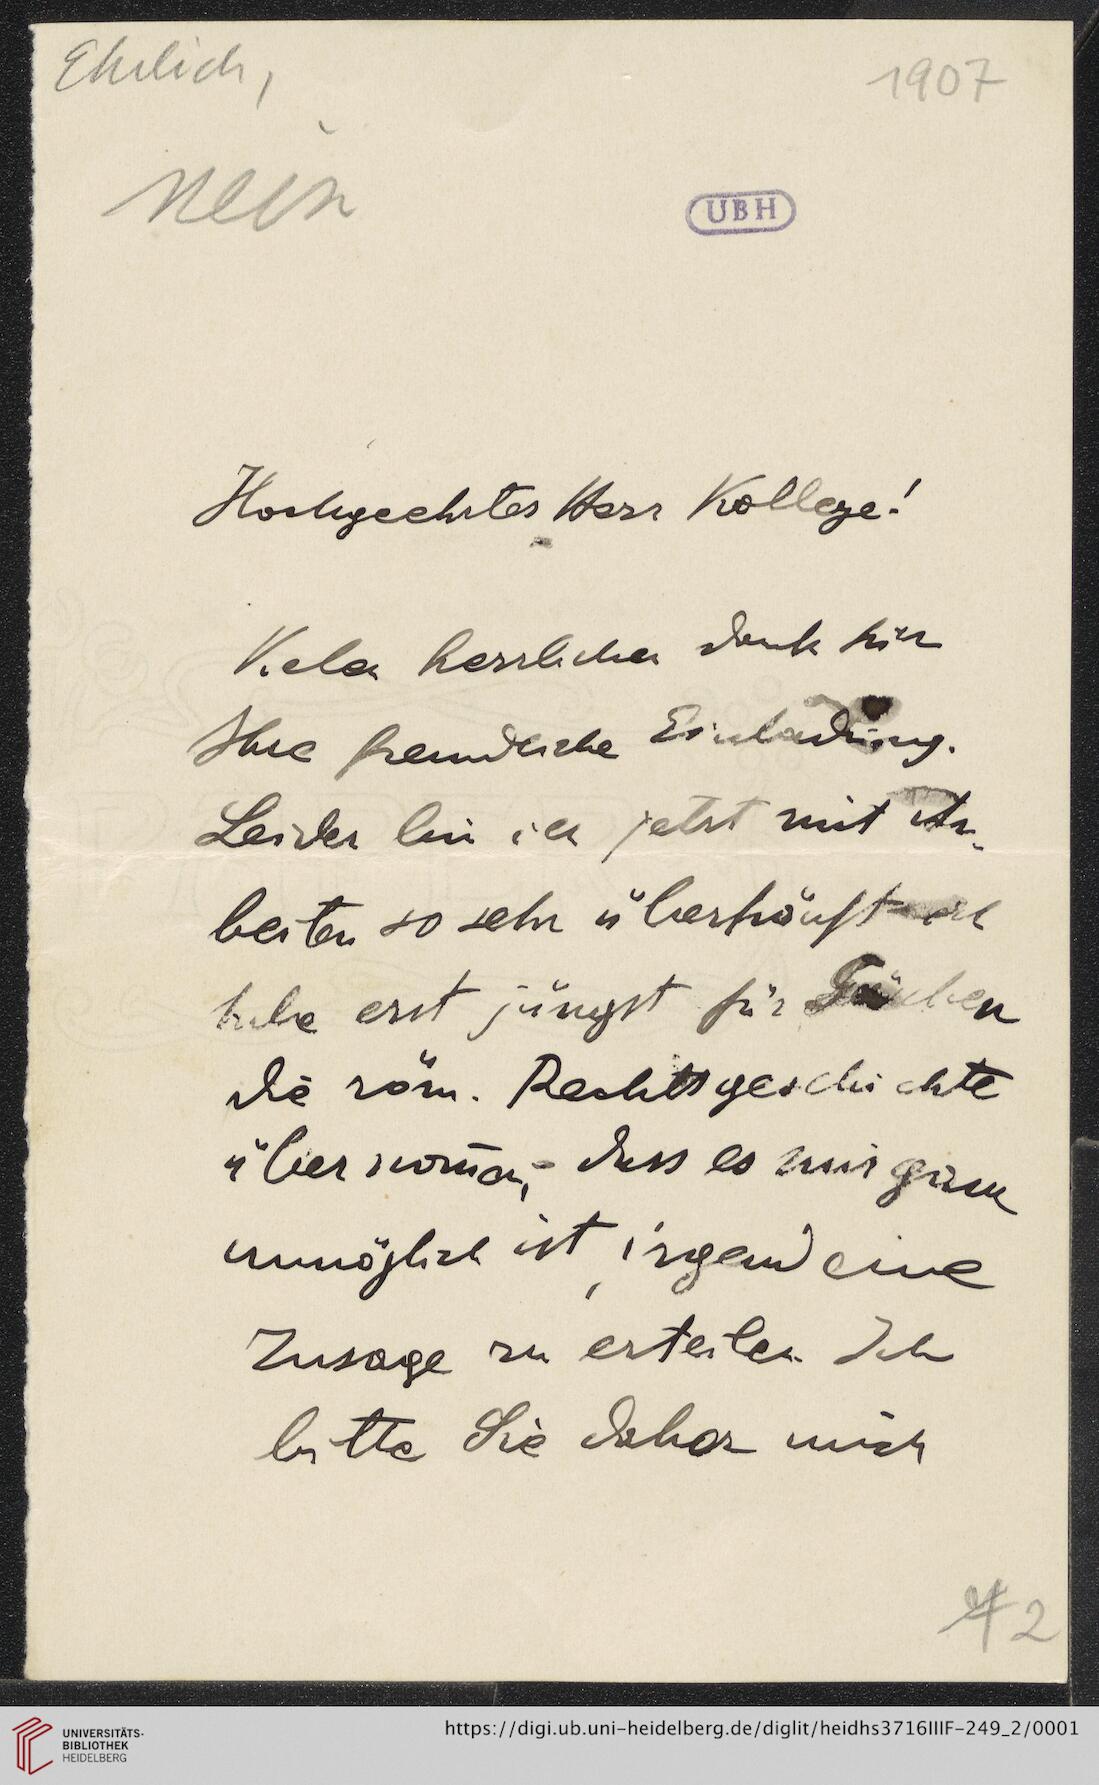 Ehrlich,
1907
nein
UBH
Hochgeehrter Herr Kollege!
Vielen herzlichen Dank für
Ihre freundliche Einladung.
Leider bin ich jetzt mit Ar-
beiten so sehr überhäuft ich
habe erst jüngst für
die röm. Rechtsgeschichte
übernom̄en, dass es mir ganz
unmöglich ist, irgend eine
Zusage zu erteilen. Ich
bitte Sie daher mich
2
UNIVERSITÄTS-
BIBLIOTHEK
HEIDELBERG
https://digi.ub.uni-heidelberg.de/diglit/heidhs3716IIIF-249_2/0001